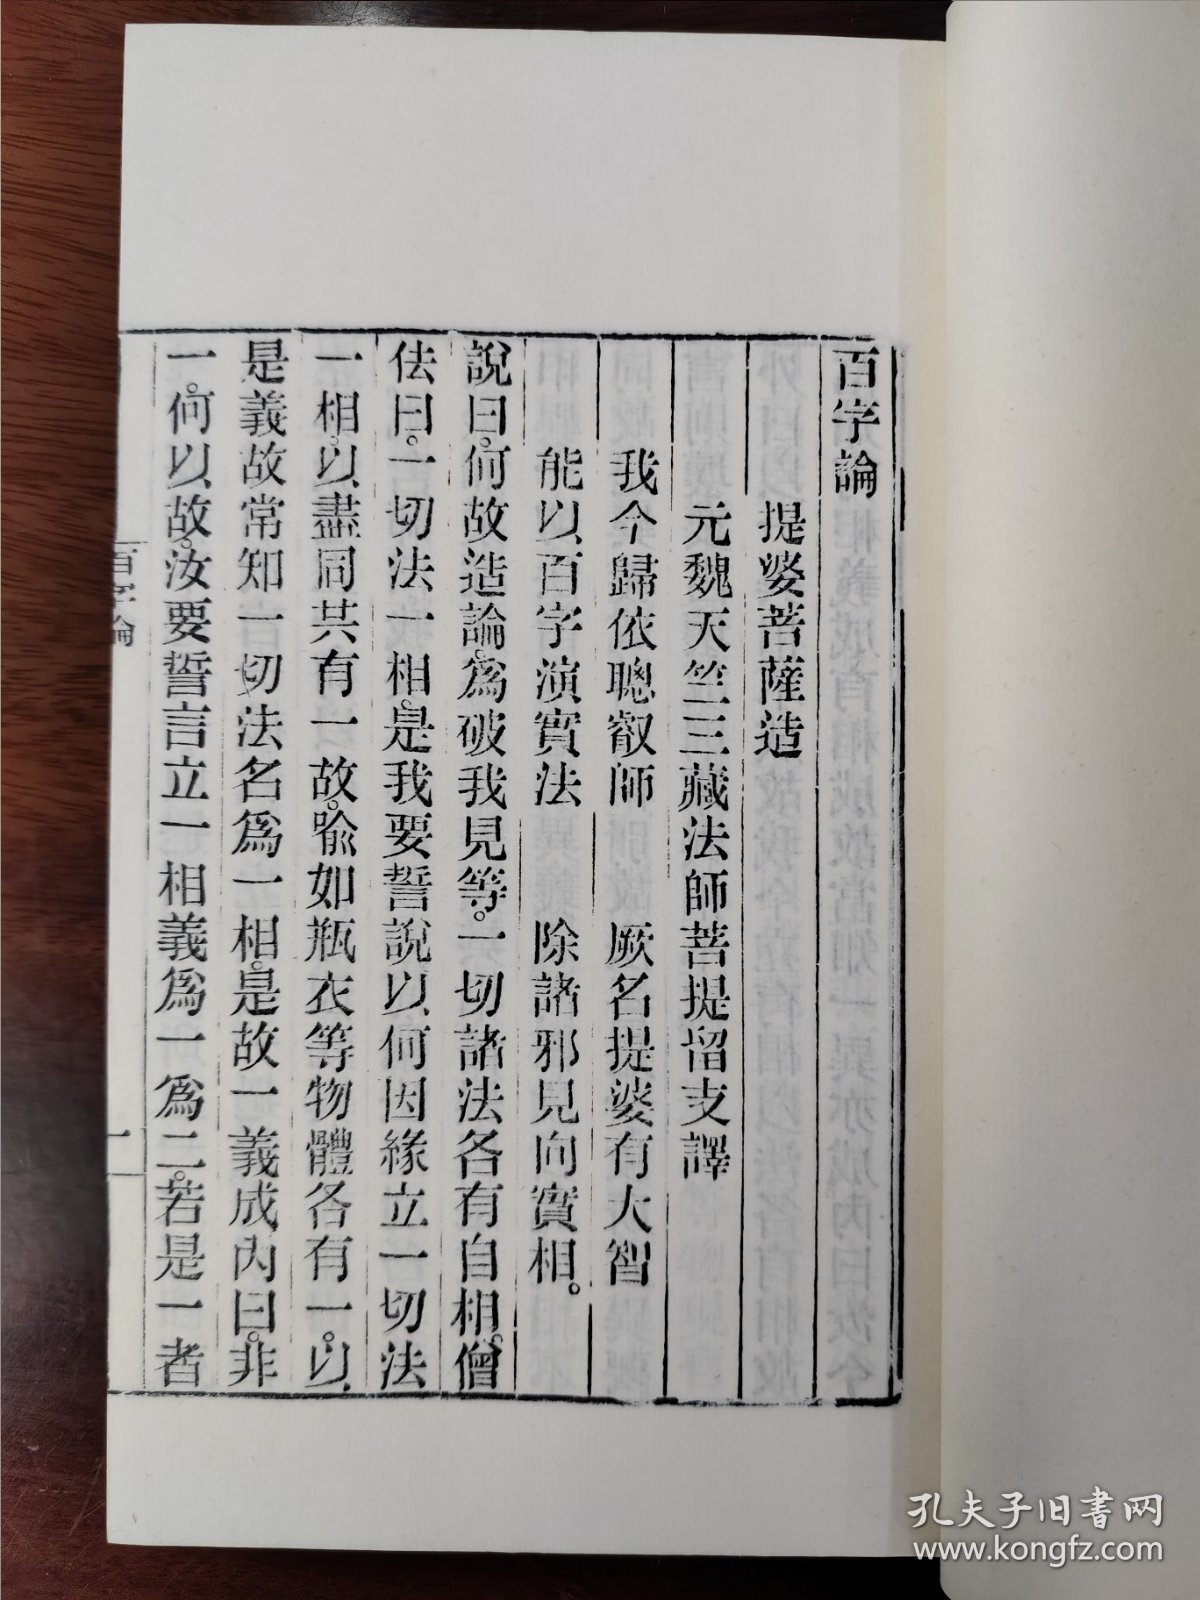 百字論
提婆菩薩造
元魏天竺三藏法師菩提留支譯
我今歸依聰叡師　厥名提婆有大智
能以百字演實法　除諸邪見向實相。
說曰。何故造論。為破我見等。一切諸法各有自相。僧
佉曰。一切法一相。是我要誓說以何因緣立一切法
一相。以盡同共有一故。喻如瓶衣等物體各有一。以
是義故常知一切法名為一相。是故一義成。內曰。非
一。何以故。汝要誓言立一相義為一為二。若是一者
百字論
一
孔夫子旧书网
www.kongfz.com